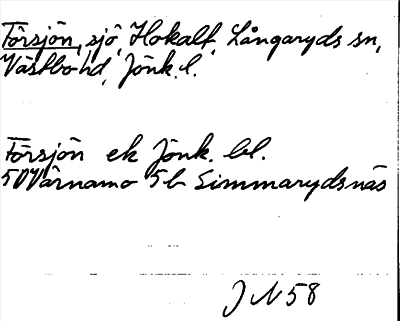 Försjön, sjö, Hokalt, Långaryds sn,
Västbo hd, Jönk. l.
Försjön ek Jönk. bl.
5D Värnamo 5b Simmarydsnäs
J N 58